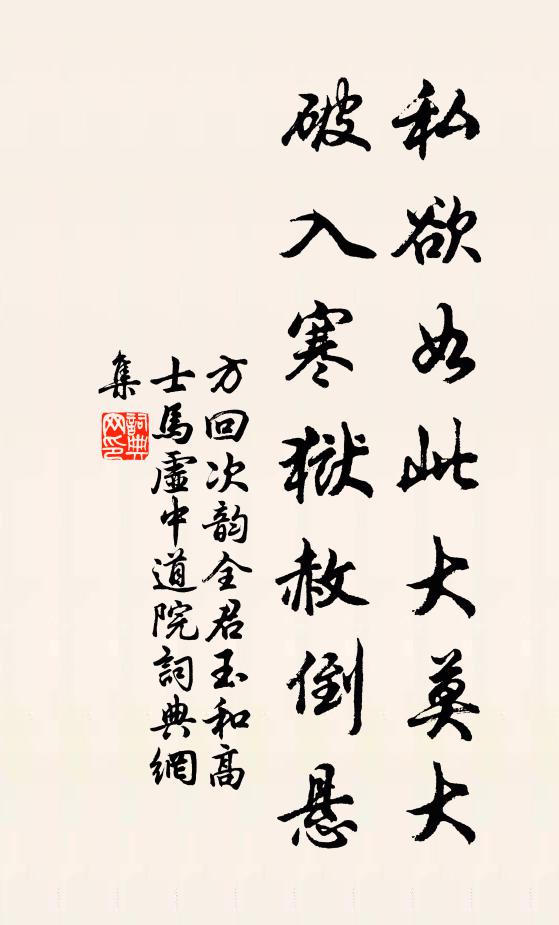 私欲如此大莫大
破入寒獄赦倒懸
方回次韵全君玉和高
士馬虛中道院詞典網
集
詞典網印